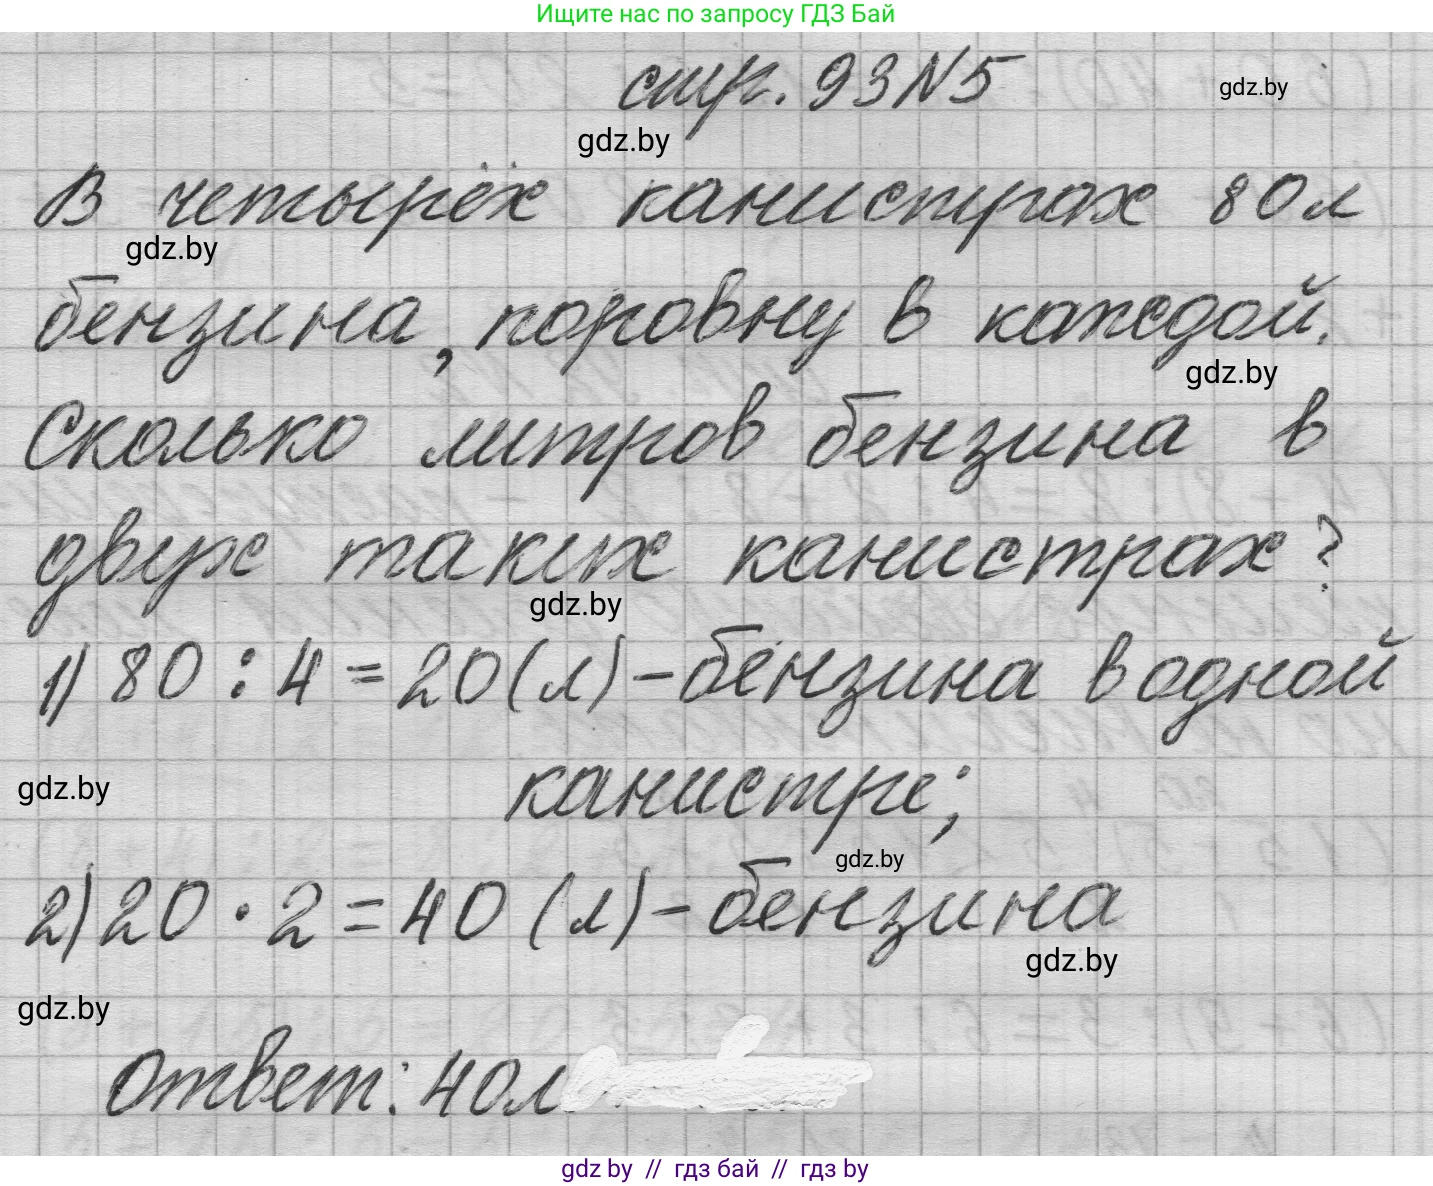 Ищите нас по запросу ГДЗ Бай
стр. 93 N5
gdz.by
gdz.by
В четырёх канистрах 80 л
gdz.by
бензина, поровну в каждой.
gdz.by
Сколько литров бензина в
двух таких канистрах?
gdz.by
1) 80 : 4 = 20 (л) - бензина в одной
gdz.by
канистре;
gdz.by
2) 20 · 2 = 40 (л) - бензина
gdz.by
gdz.by
Ответ: 40 л
gdz by // гдз бай // гдз by